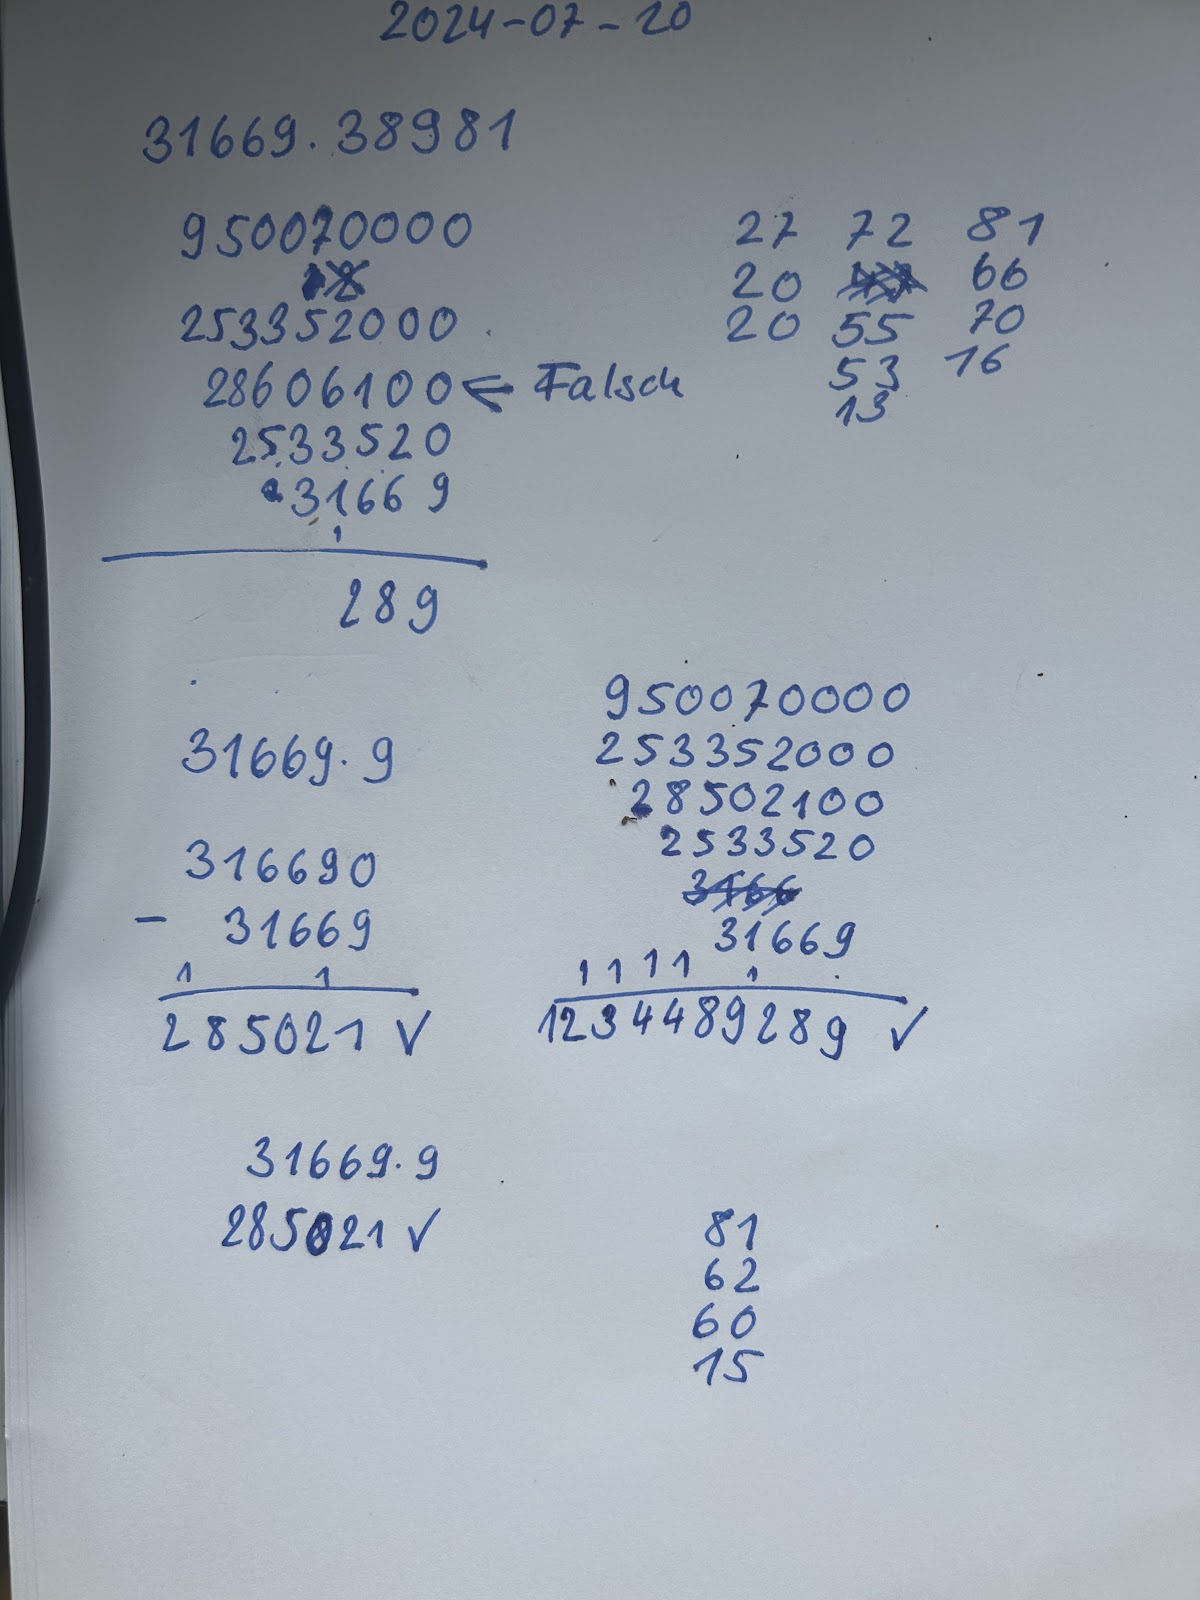 2024-07-20
31669.38981
950070000
253352000
28606100 ← Falsch
2533520
31669
1
289
27 72 81
20 66
20 55 70
53 16
13
31669.9
316690
- 31669
1 1
285021 ✓
950070000
253352000
28502100
2533520
3166
31669
1 1 1 1 1
1234489289 ✓
31669.9
285021 ✓
81
62
60
15